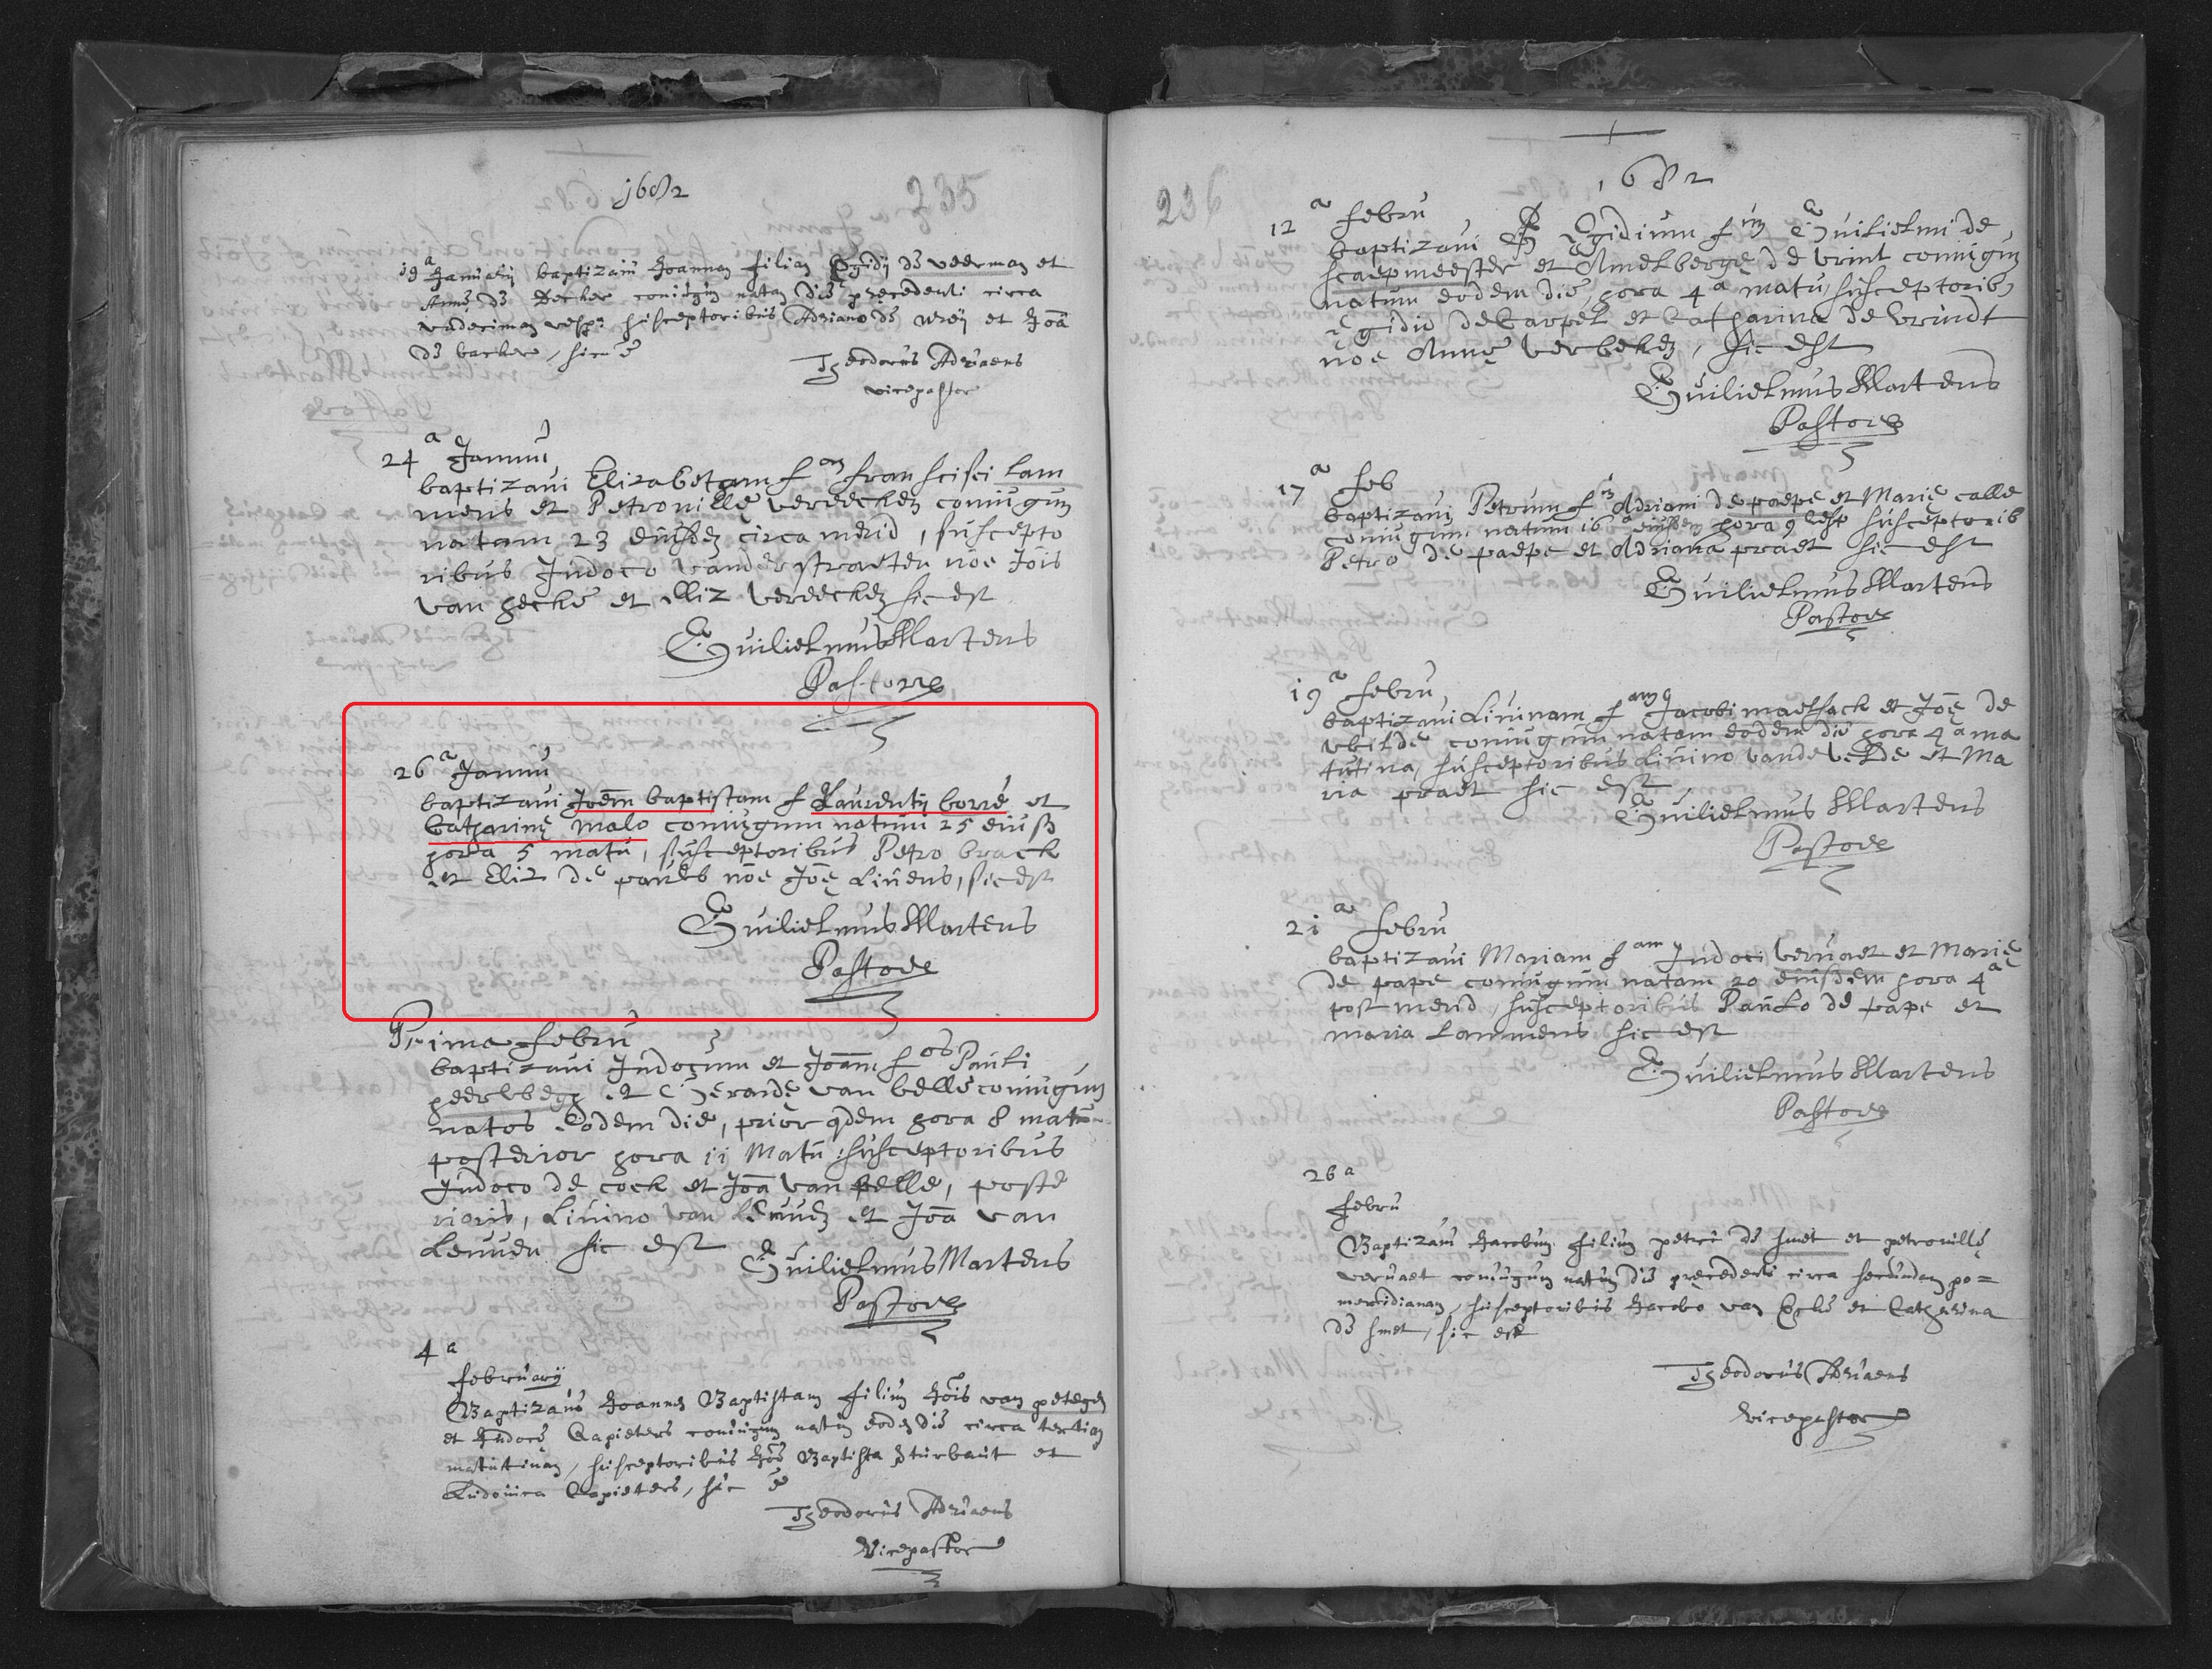 1682
235
19a Januarij baptizavi Joannam filiam Egidij de veerman et
Annę de Decker coniugum natam die precedenti circa
undecimam vesp: susceptoribus Adriano de Meij et Joā
de backer, sic ē
Theodorus Adriaens
vicepastor
24a Januu
baptizavi Elizabetam fam Franscisci Lam
mens et Petronillę vereecken coniugum
natam 23 eiusdem circa merid, suscepto
ribus Judoco vander straeten noē Jois
van hecke et Eliz vereecken sic est
Guilielmus Martens
Pastor
26a Januu
baptizavi Joēm baptistam f Laurentij borrē et
Catharinę malo coniugum natum 25 eiusd
hora 5 matu, susceptoribus Petro brack
et Eliz de pauls noē Joę Linens, sic est
Guilielmus Martens
Pastor
Prima Febru
baptizavi Judocum et Joānm fos Pauli
peerlbegh et Gerardę van belle coniugum
natos eodem die, prior qdem hora 8 matu
posterior hora ii Matu: susceptoribus
Judoco de cock et Joā van belle, poste
rioris, Livino van Leuuen et Joā van
Leuuen sic est
Guilielmus Martens
Pastor
4a
februarij
Baptizavi Joannem Baptistam filium Jois van petegem
et Judocę Capieters coniugum natum eodem die circa tertiam
matutinam, susceptoribus Joē Baptista sturbaut et
Ludovica Capieters, sic ē
Theodorus Adriaens
Vicepastor
236
1682
12a Febru
baptizavi Egidium fum Guilielmi de
scaepmeester et Amelbergę de brint coniugum
natum eodem die, hora 4a matu, susceptorib,
Egidio de Carpel et Catharina de brundt
noē Annę verbeken, sic est
Guilielmus Martens
Pastor
17a Feb
baptizavi Petrum fum Adriani de paepe et Marię calle
coniugum natum 16a eiusdem hora 9 vesp susceptorib
Petro de paepe et Adriana praet sic est
Guilielmus Martens
Pastor
19a Febru
baptizavi Livinam fam Jacobi maelsack et Joę de
vilde coniugum natam eodem die hora 4a ma
tutina, susceptoribus Livino vande velde et Ma
ria praet sic est
Guilielmus Martens
Pastor
2ia Febru
baptizavi Mariam fam Judoci vervaet et Marię
de pape coniugum natam 20 eiusdem hora 4a
post merid, susceptoribus Paulo de pape et
maria Lammens sic est
Guilielmus Martens
Pastor
26a
Febru
Baptizavi Jacobum filium petri de smet et petronillę
vervaet coniugum natum die precedenti circa secundam po=
meridianam, susceptoribus Jacobo van Ecke et Catharina
de smet, sic est
Theodorus Adriaens
vicepastor